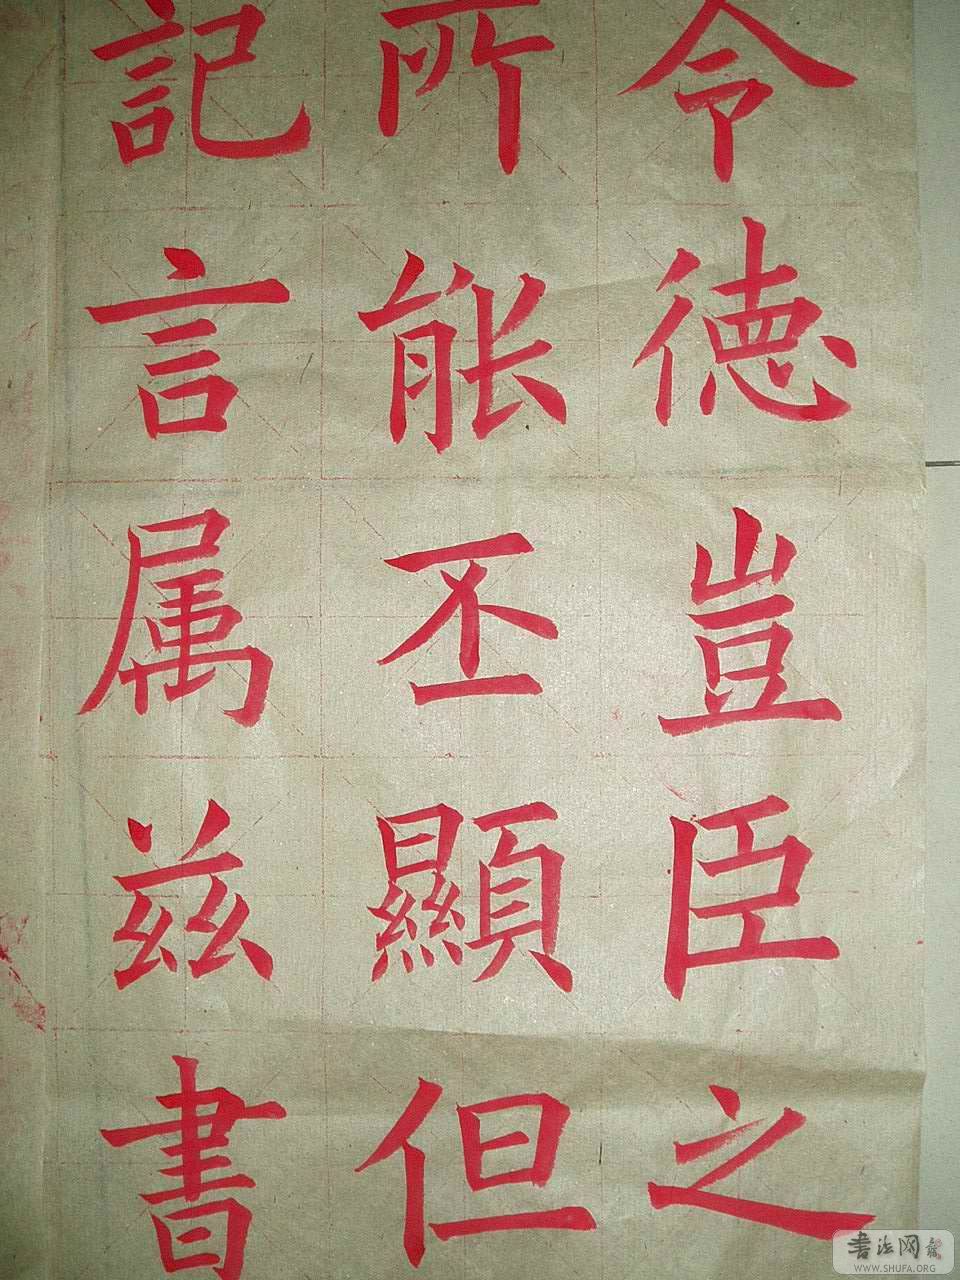 令德豈臣之
所能丕顯但
記言属兹書
书法网
WWW.SHUFA.ORG